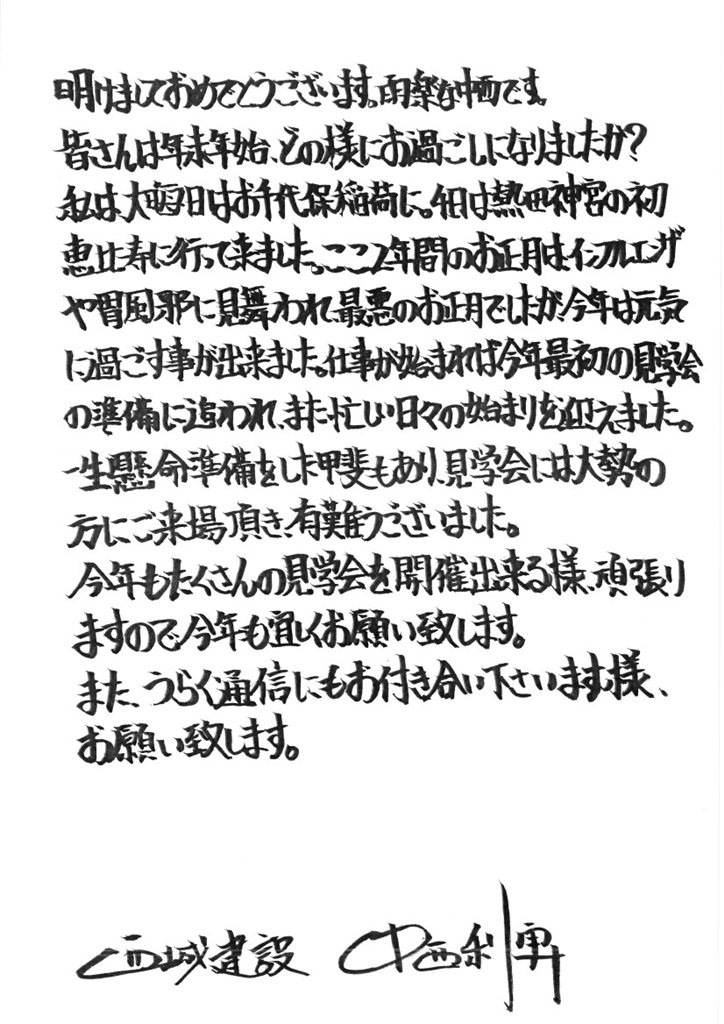 明けましておめでとうございます。雨楽な中西です。
皆さんは年末年始、どの様にお過ごしになりましたか?
私は大晦日はお千代保稲荷に。4日は熱田神宮の初
恵比寿に行って来ました。ここ2年間のお正月はインフルエンザ
や胃風邪に見舞われ、最悪のお正月でしたが、今年は元気
に過ごす事が出来ました。仕事が始まれば今年最初の見学会
の準備に追われ、また忙しい日々の始まりを迎えました。
一生懸命準備をした甲斐もあり、見学会には大勢の
方にご来場頂き、有難うございました。
今年もたくさんの見学会を開催出来る様、頑張り
ますので今年も宜しくお願い致します。
また、うらく通信にもお付き合い下さいます様、
お願い致します。
西城建設 中西利